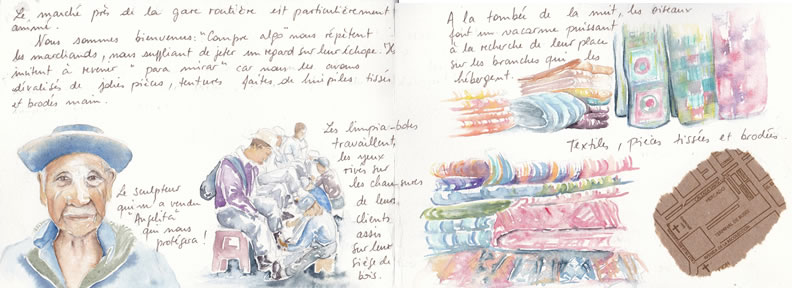 Le marché près de la gare routière est particulièrement
animé.
Nous sommes bienvenus: "Compre algo" nous répètent
les marchands, nous suppliant de jeter un regard sur leur échope. Ils
invitent à revenir "para mirar" car nous les avons
dévalisés de jolies pièces, tentures faites de huipiles tissés
et brodés main.
Le sculpteur
qui m'a vendu
"Angelita"
qui nous
protégera!
Les limpia-botas
travaillent,
les yeux
rivés sur
les chaussures
de leurs
clients
assis
sur leur
siège de
bois.
A la tombée de la nuit, les oiseaux
font un vacarme puissant
à la recherche de leur place
sur les branches qui les
hébergent.
Textiles, pièces tissées et brodées.
MERCADO
TERMINAL DE BUSES